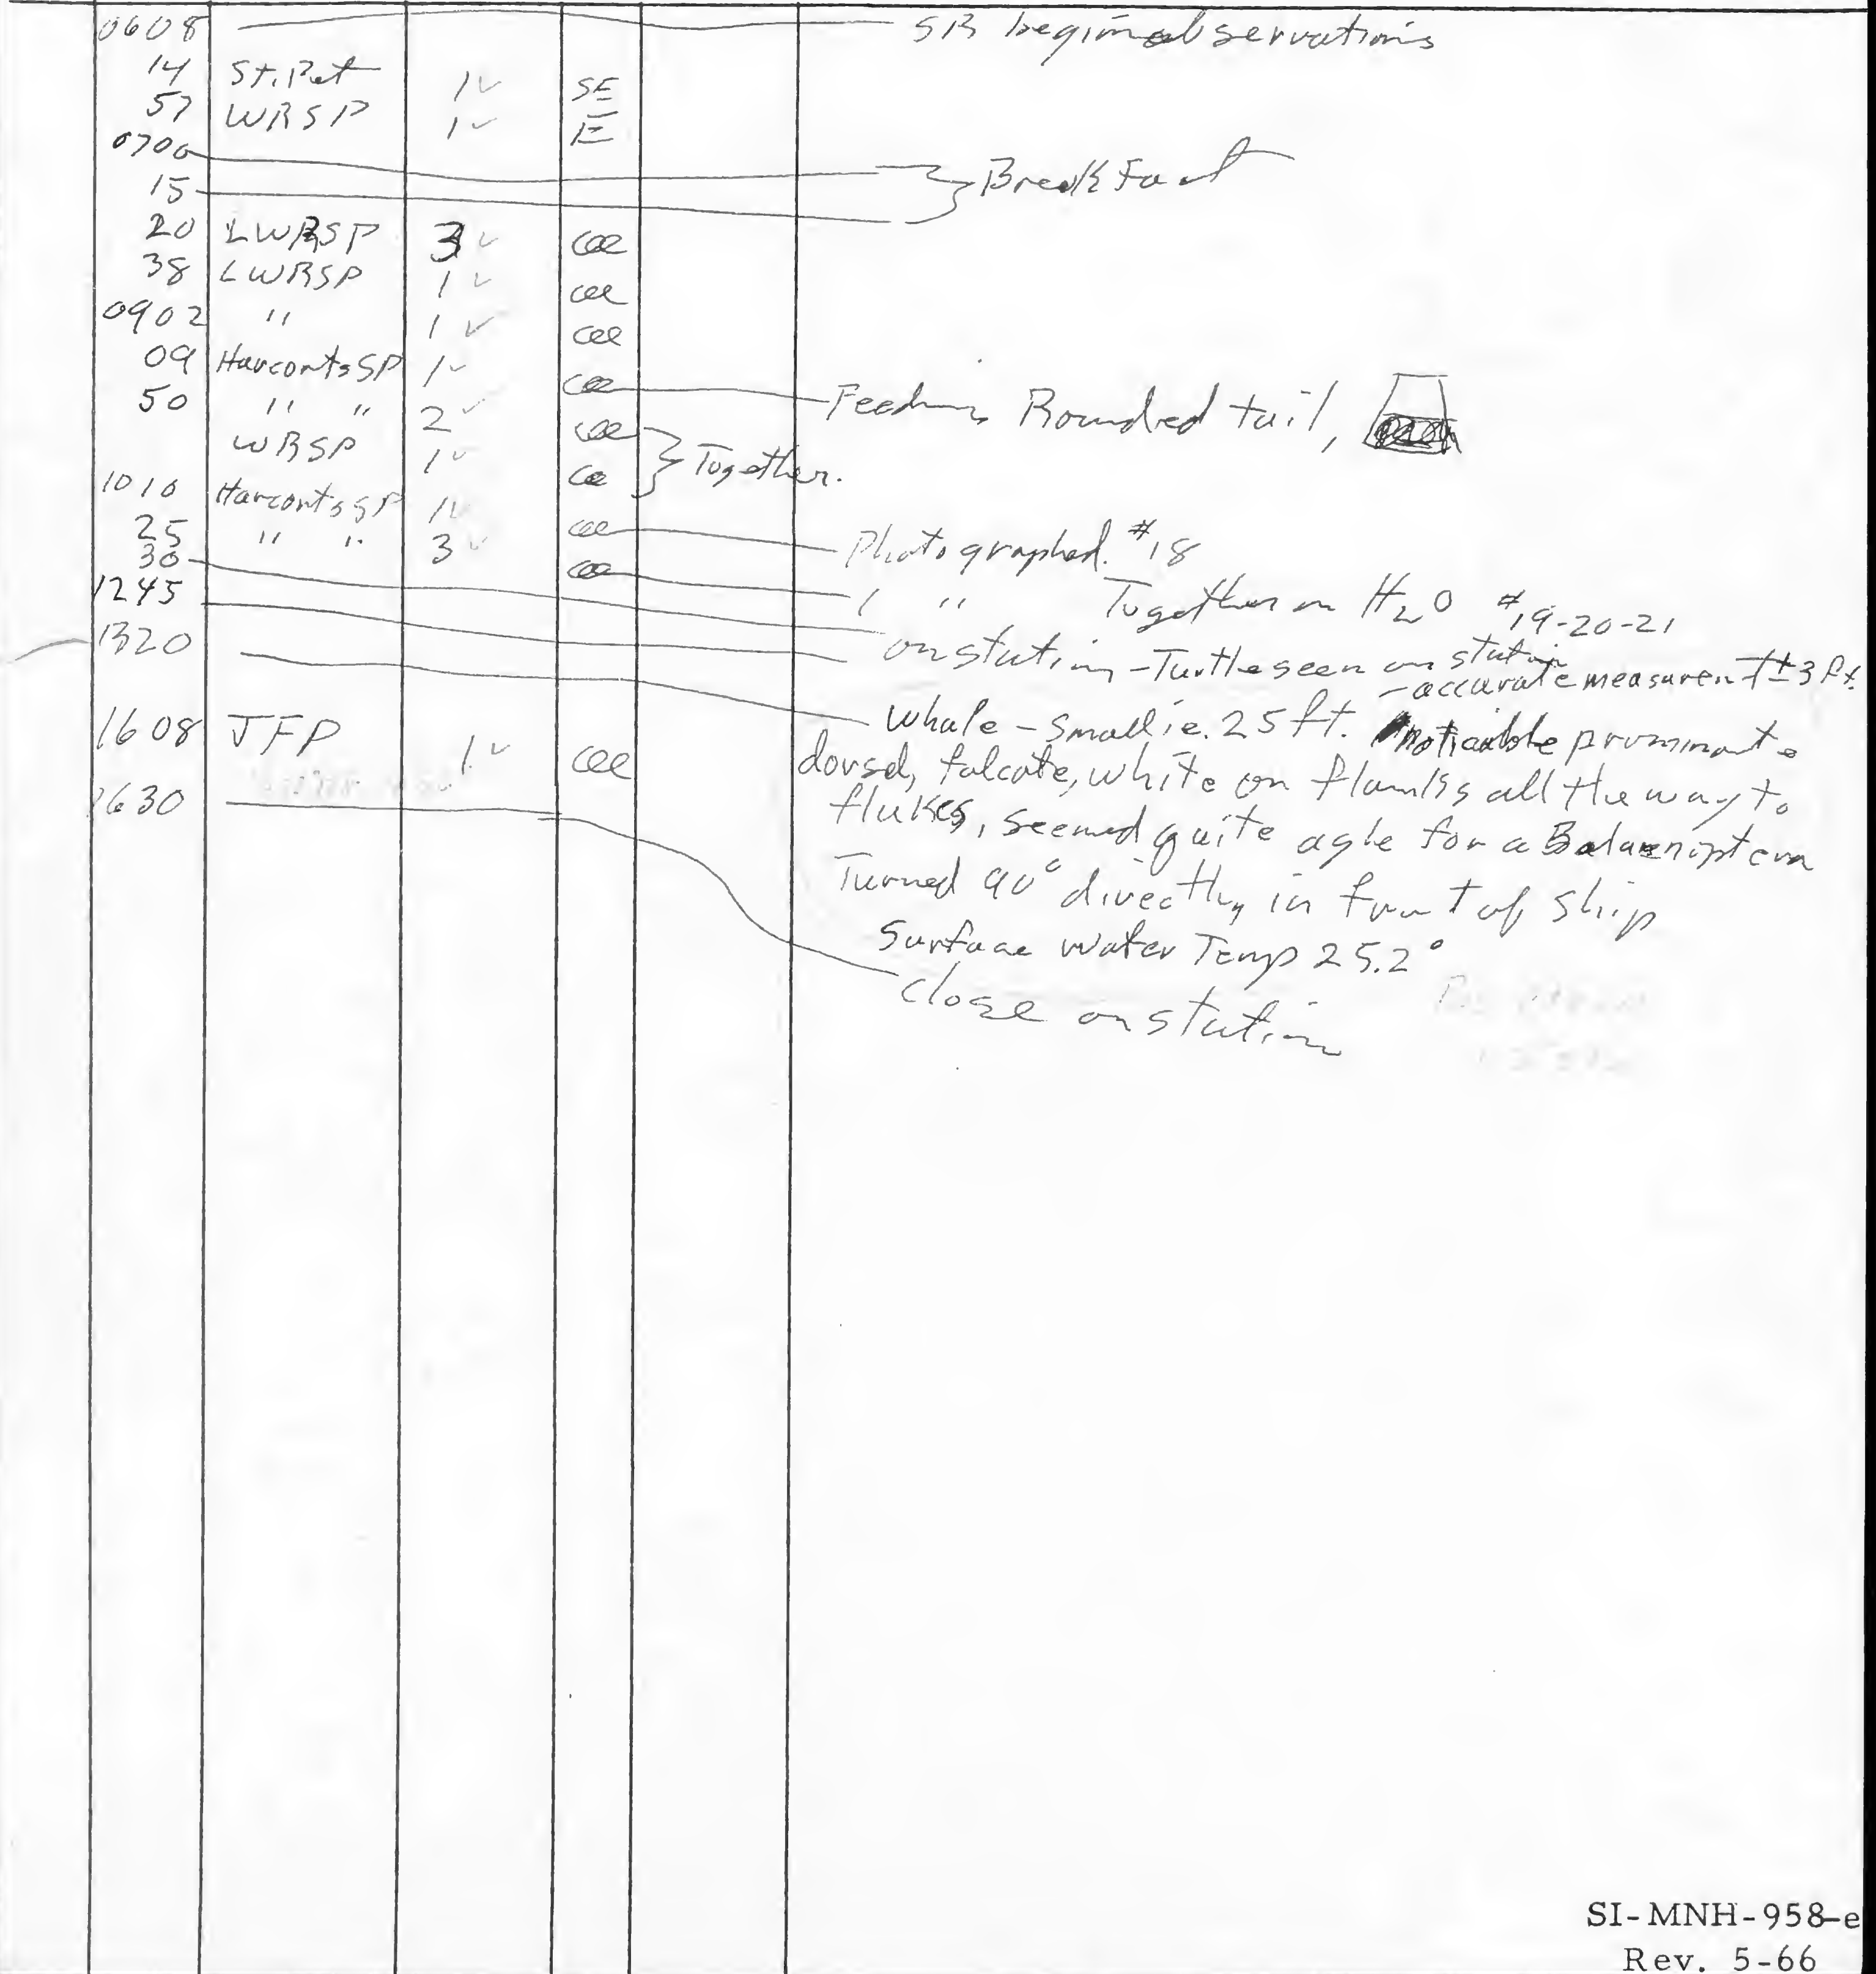 0608 SB begin observations
14 St. Pet 1✓ SE
57 WRSP 1✓ E
0700
15 } Breakfast
20 LWRSP 3✓
38 LWRSP 1✓
0902 " 1✓
09 HarcourtsSP 1✓ Feeding Rounded tail,
50 " " 2✓
WRSP 1✓ } Together.
1010 HarcourtsSP 1✓ Photographed. #18
25 " " 3✓ " Together on H2O #19-20-21
30
1245 on station - Turtle seen on station
1320 Whale - Small ie. 25 ft. - accurate measurement ± 3 ft. noticable prominate
dorsal, falcate, white on flanks all the way to
flukes, seemed quite agle for a Balaenoptera
Turned 90° directly in front of ship
Surface water Temp 25.2°
1608 JFP 1✓
1630 close on station
SI-MNH-958-e
Rev. 5-66